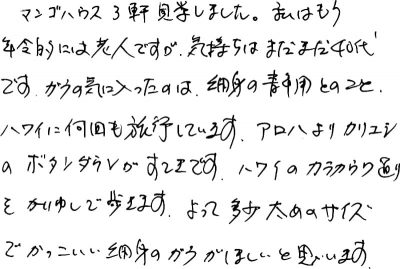 マンゴハウス3軒見学しました。私はもう
年令的には老人ですが、気持ちはまだまだ40代
です。ガラの気に入ったのは、細身の青年用とのこと、
ハワイに何回も旅行しています。アロハよりカリユシ
のボタンダウンがすてきです。ハワイのカラカウク通り
をかりゆしで歩きます。よって多少太めのサイズ
でかっこいい細身のガラがほしいと思います。